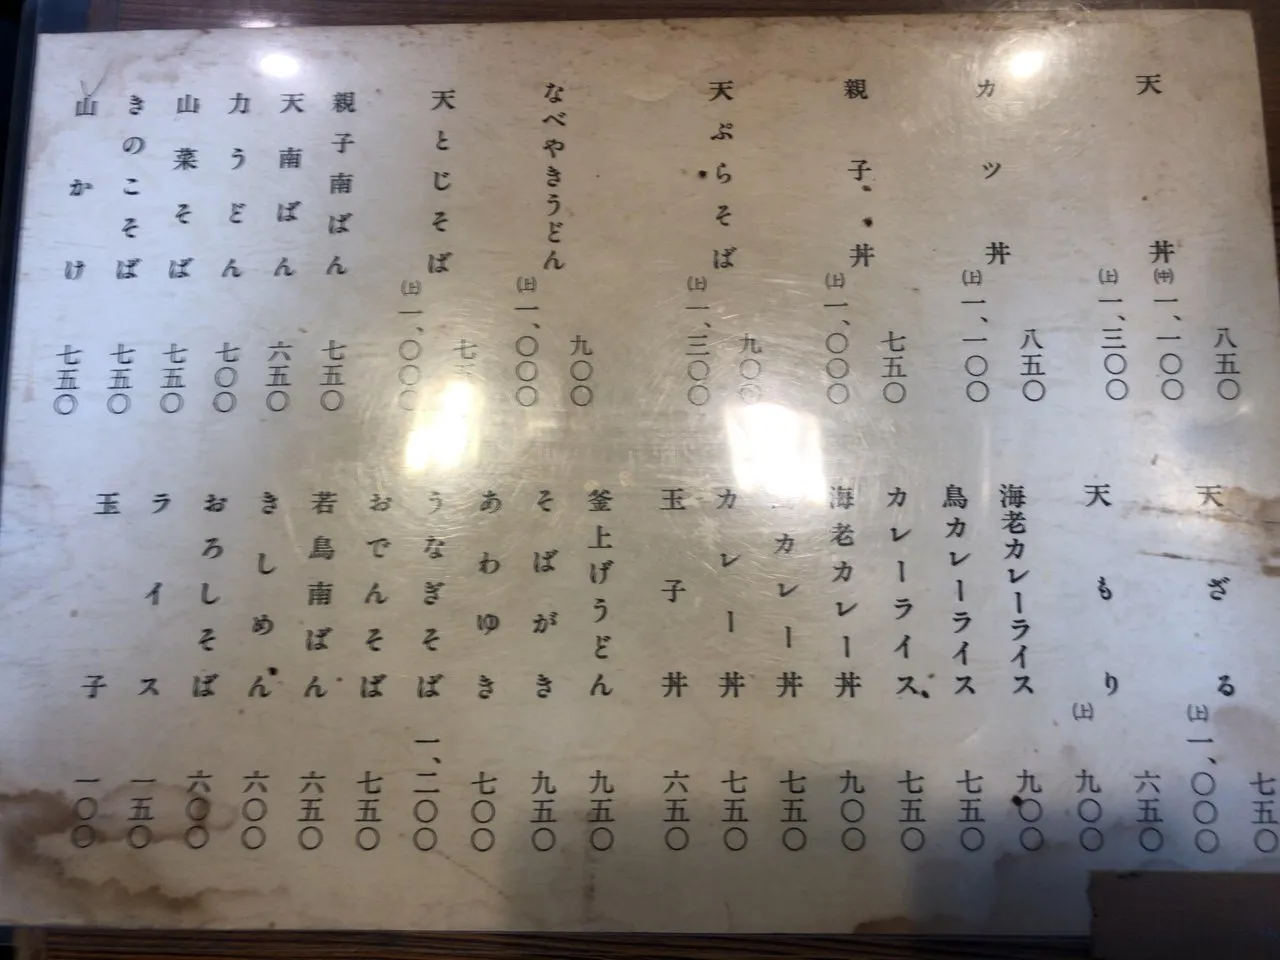 天丼 八五〇
㊥一、一〇〇
㊤一、三〇〇
カツ丼 八五〇
㊤一、一〇〇
親子丼 七五〇
㊤一、〇〇〇
天ぷらそば 九〇〇
㊤一、三〇〇
なべやきうどん 九〇〇
㊤一、〇〇〇
天とじそば 七
㊤一、〇〇〇
親子南ばん 七五〇
天南ばん 六五〇
力うどん 七〇〇
山菜そば 七五〇
きのこそば 七五〇
山かけ 七五〇
天ざる 七五〇
㊤一、〇〇〇
天もり 六五〇
㊤九〇〇
海老カレーライス 九〇〇
鳥カレーライス 七五〇
カレーライス 七五〇
海老カレー丼 九〇〇
カレー丼 七五〇
カレー丼 七五〇
玉子丼 六五〇
釜上げうどん 九五〇
そばがき 九五〇
あわゆき 七〇〇
うなぎそば 一、二〇〇
おでんそば 七五〇
若鳥南ばん 六五〇
きしめん 六〇〇
おろしそば 六〇〇
ライス 一五〇
玉子 一〇〇